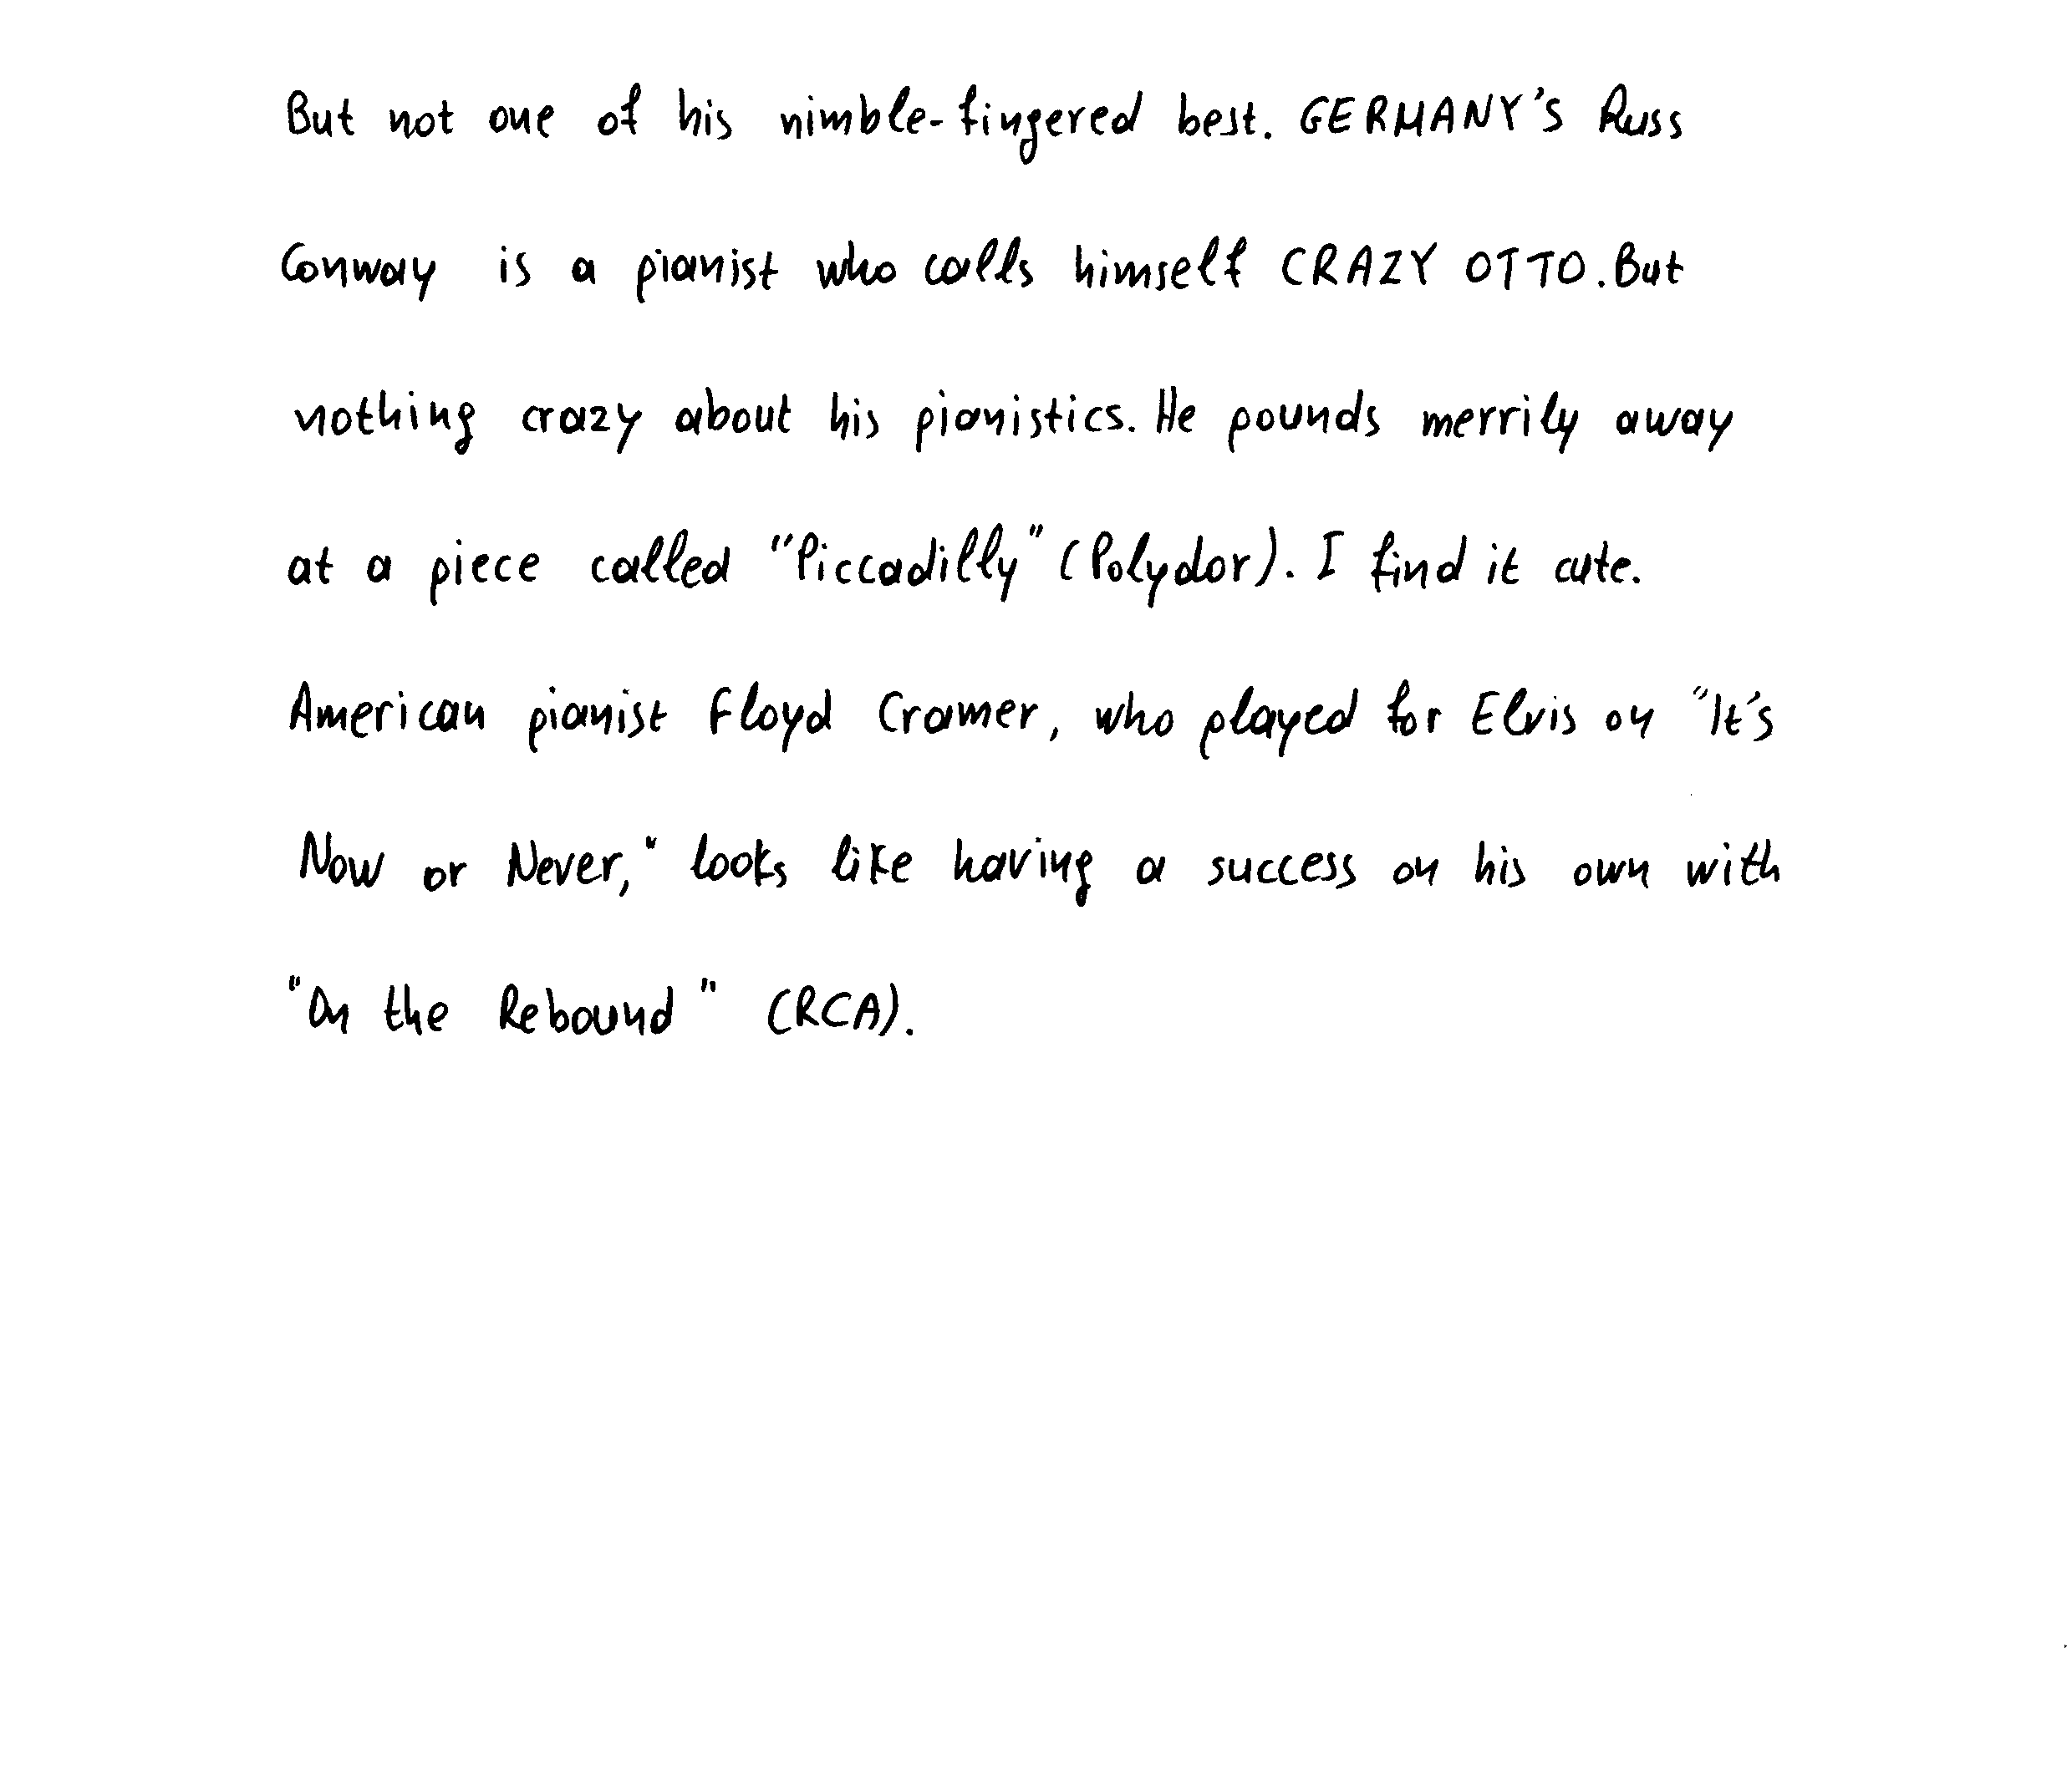 But not one of his nimble-fingered best. GERMANY's Russ
Conway is a pianist who calls himself CRAZY OTTO. But
nothing crazy about his pianistics. He pounds merrily away
at a piece called "Piccadilly" (Polydor). I find it cute.
American pianist Floyd Cramer, who played for Elvis on "It's
Now or Never," looks like having a success on his own with
"On the Rebound" (RCA).